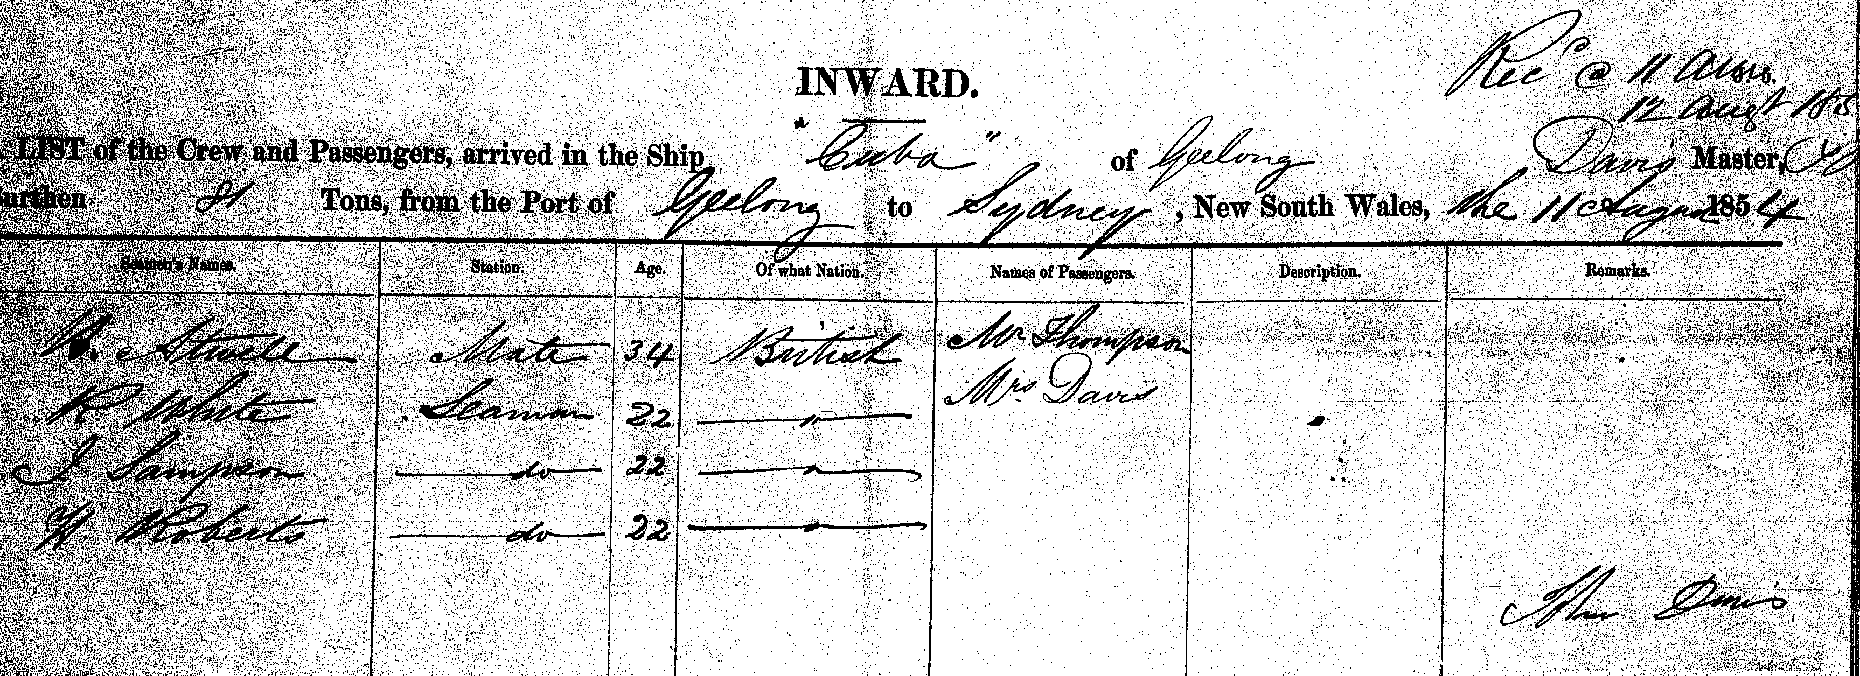 Rec'd @ 11 a.m.
INWARD.
12 Augt 185
LIST of the Crew and Passengers, arrived in the Ship "Cuba" of Geelong Davis Master,
Burthen 81 Tons, from the Port of Geelong to Sydney, New South Wales, the 11 August 1854
Seamen's Names. Station. Age. Of what Nation. Names of Passengers. Description. Remarks.
Mate 34 British Mr Thompson
R White Seaman 22 " Mrs Davis
J Sampson do 22 "
H Roberts do 22 "
John Davis